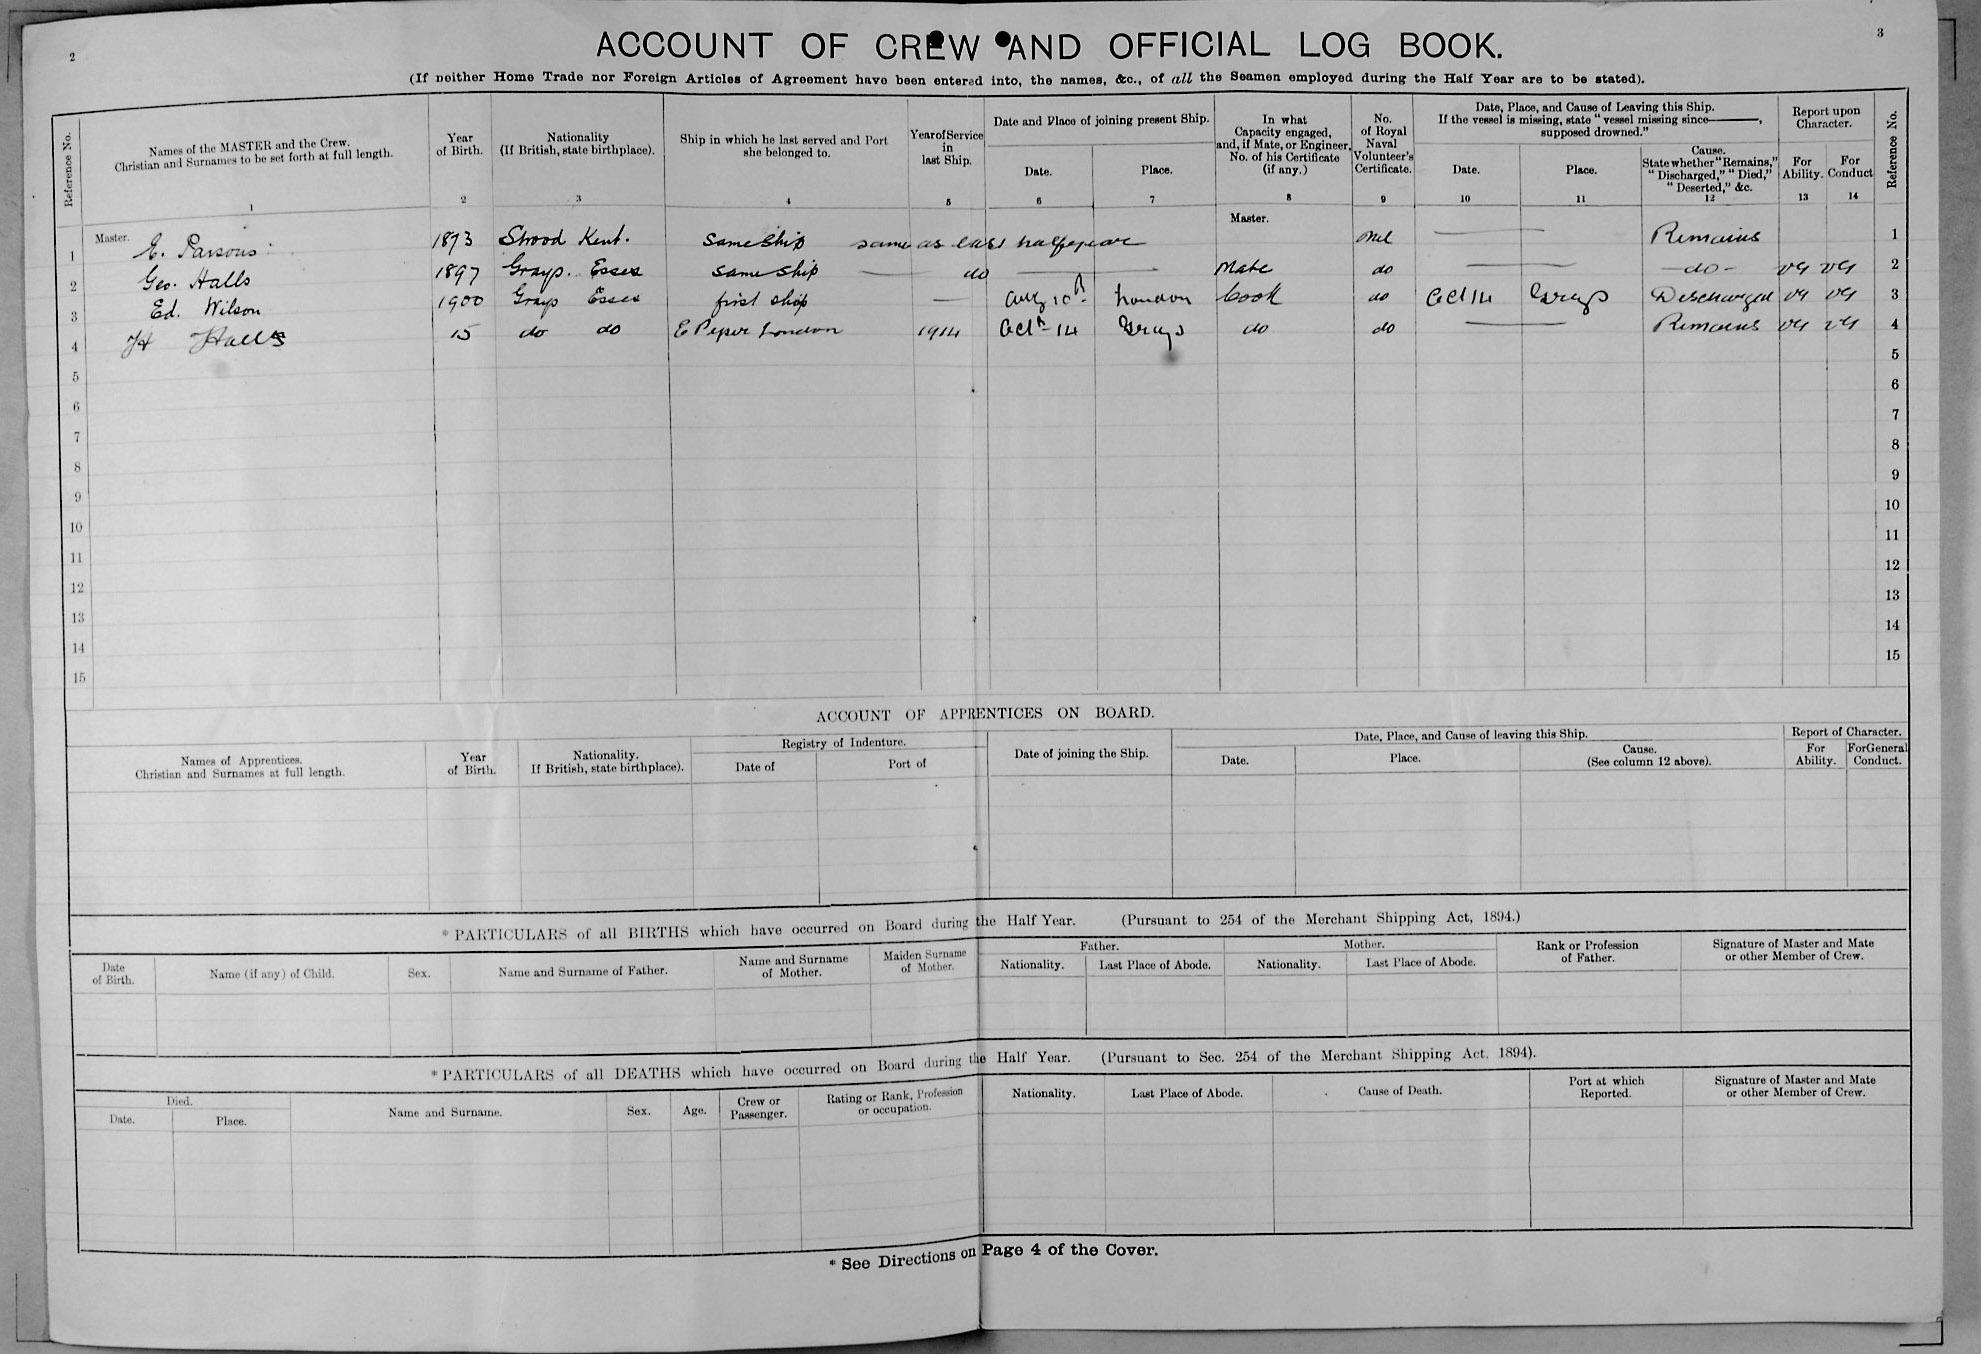 2
3
ACCOUNT OF CREW AND OFFICIAL LOG BOOK.
(If neither Home Trade nor Foreign Articles of Agreement have been entered into, the names, &c., of all the Seamen employed during the Half Year are to be stated).
Reference No.
Names of the MASTER and the Crew.
Christian and Surnames to be set forth at full length.
1
Year
of Birth.
2
Nationality
(If British, state birthplace).
3
Ship in which he last served and Port
she belonged to.
4
Year of Service
in
last Ship.
5
Date and Place of joining present Ship.
Date.
6
Place.
7
In what
Capacity engaged,
and, if Mate, or Engineer,
No. of his Certificate
(if any.)
8
No.
of Royal
Naval
Volunteer's
Certificate.
9
Date, Place, and Cause of Leaving this Ship.
If the vessel is missing, state "vessel missing since———,
supposed drowned."
Date.
10
Place.
11
Cause.
State whether "Remains,"
"Discharged," "Died,"
"Deserted," &c.
12
Report upon
Character.
For
Ability.
13
For
Conduct
14
Reference No.
1 Master. E. Parsons 1873 Strood Kent. Same ship same as last half year Master. Remains 1
2 Geo. Halls 1897 Grays. Essex same ship do Mate do do VG VG 2
3 Ed. Wilson 1900 Grays Essex first ship Aug 10th London Cook do Oct 14 Grays Discharged VG VG 3
4 H Halls 15 do do London 1914 Oct 14 Grays do do Remains VG VG 4
5 5
6 6
7 7
8 8
9 9
10 10
11 11
12 12
13 13
14 14
15 15
ACCOUNT OF APPRENTICES ON BOARD.
Names of Apprentices.
Christian and Surnames at full length.
Year
of Birth.
Nationality.
If British, state birthplace).
Registry of Indenture.
Date of
Port of
Date of joining the Ship.
Date, Place, and Cause of leaving this Ship.
Date.
Place.
Cause.
(See column 12 above).
Report of Character.
For
Ability.
For General
Conduct.
* PARTICULARS of all BIRTHS which have occurred on Board during the Half Year. (Pursuant to 254 of the Merchant Shipping Act, 1894.)
Date
of Birth.
Name (if any) of Child.
Sex.
Name and Surname of Father.
Name and Surname
of Mother.
Maiden Surname
of Mother.
Father.
Nationality.
Last Place of Abode.
Mother.
Nationality.
Last Place of Abode.
Rank or Profession
of Father.
Signature of Master and Mate
or other Member of Crew.
* PARTICULARS of all DEATHS which have occurred on Board during the Half Year. (Pursuant to Sec. 254 of the Merchant Shipping Act. 1894).
Died.
Date.
Place.
Name and Surname.
Sex.
Age.
Crew or
Passenger.
Rating or Rank, Profession
or occupation.
Nationality.
Last Place of Abode.
Cause of Death.
Port at which
Reported.
Signature of Master and Mate
or other Member of Crew.
* See Directions on Page 4 of the Cover.